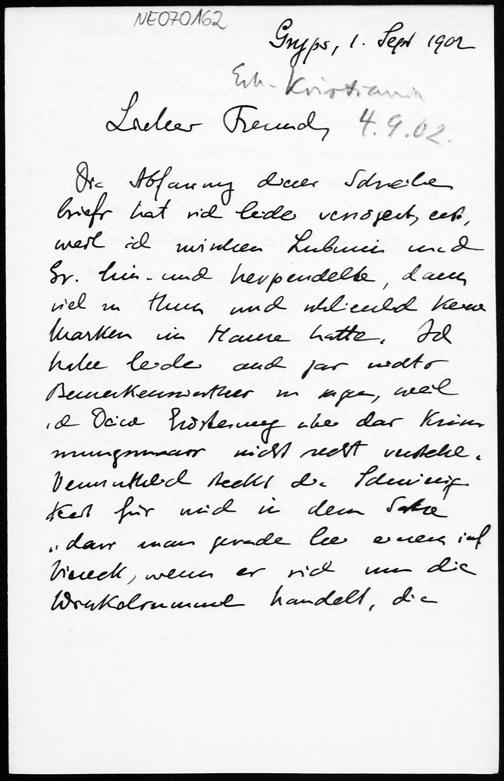 NE070162
Gryps, 1. Sept 1902
Erh. Kristiania
4.9.02.
Lieber Freund,
Die Abfassung dieses Schreibe
briefs hat sich leider verzögert,
weil ich zwischen Lubmin und
Gr. hin- und herpendelte, dann
viel zu thun und schliesslich keine
Marken im Hause hatte. Ich
habe leider auch gar nichts
Bemerkenswerthes zu sagen, weil
ich Deine Erörterung über das Krüm
mungsmaass nicht recht verstehe.
Vermuthlich steckt die Schwierig
keit für mich in dem Satze
"dass man gerade bei einem
Viereck, wenn es sich um die
Winkelsumme handelt, die